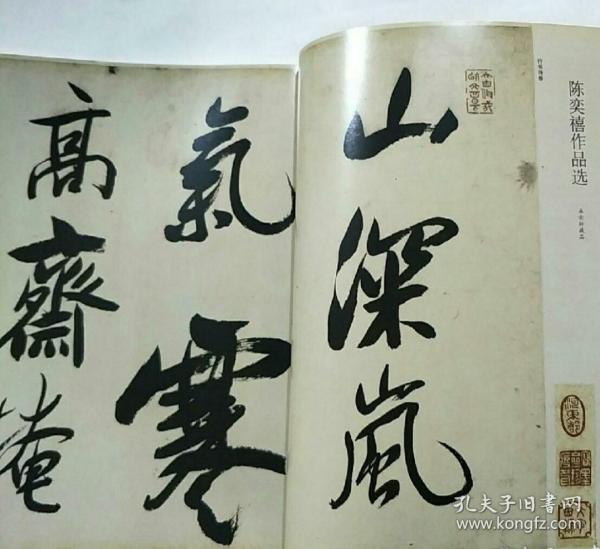 陈奕禧作品选
行书诗卷
山深嵐
氣寒
高齋掩
孔夫子旧书网
www.kongfz.com